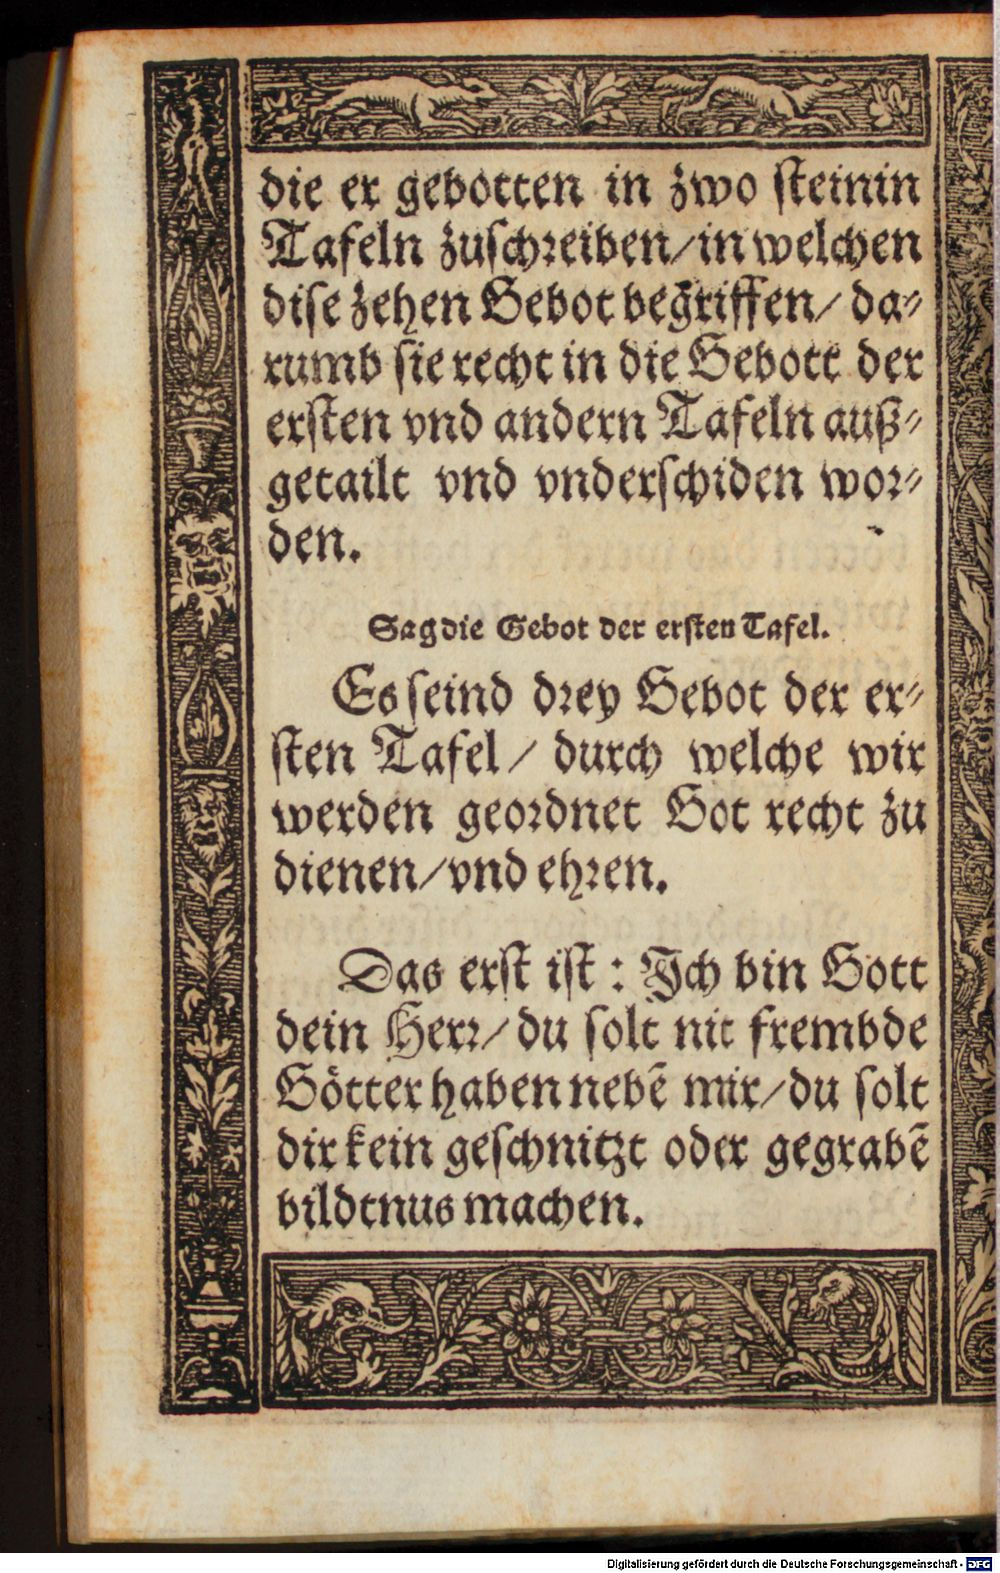 die er gebotten in zwo steinin
Tafeln zuschreiben/ in welchen
dise zehen Gebot begriffen/ da⸗
rumb sie recht in die Gebott der
ersten vnd andern Tafeln auß⸗
getailt vnd vnderschiden wor⸗
den.
Sag die Gebot der ersten Tafel.
Es seind drey Gebot der er⸗
sten Tafel/ durch welche wir
werden geordnet Got recht zu
dienen/ vnd ehren.
Das erst ist: Ich bin Gott
dein Herr/ du solt nit frembde
Götter haben nebẽ mir/ du solt
dir kein geschnitzt oder gegrabẽ
bildtnus machen.
Digitalisierung gefördert durch die Deutsche Forschungsgemeinschaft - DFG